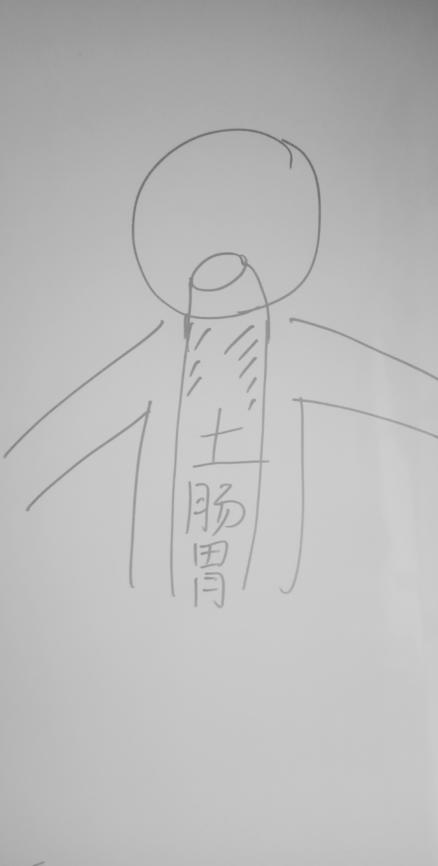 土
肠
胃